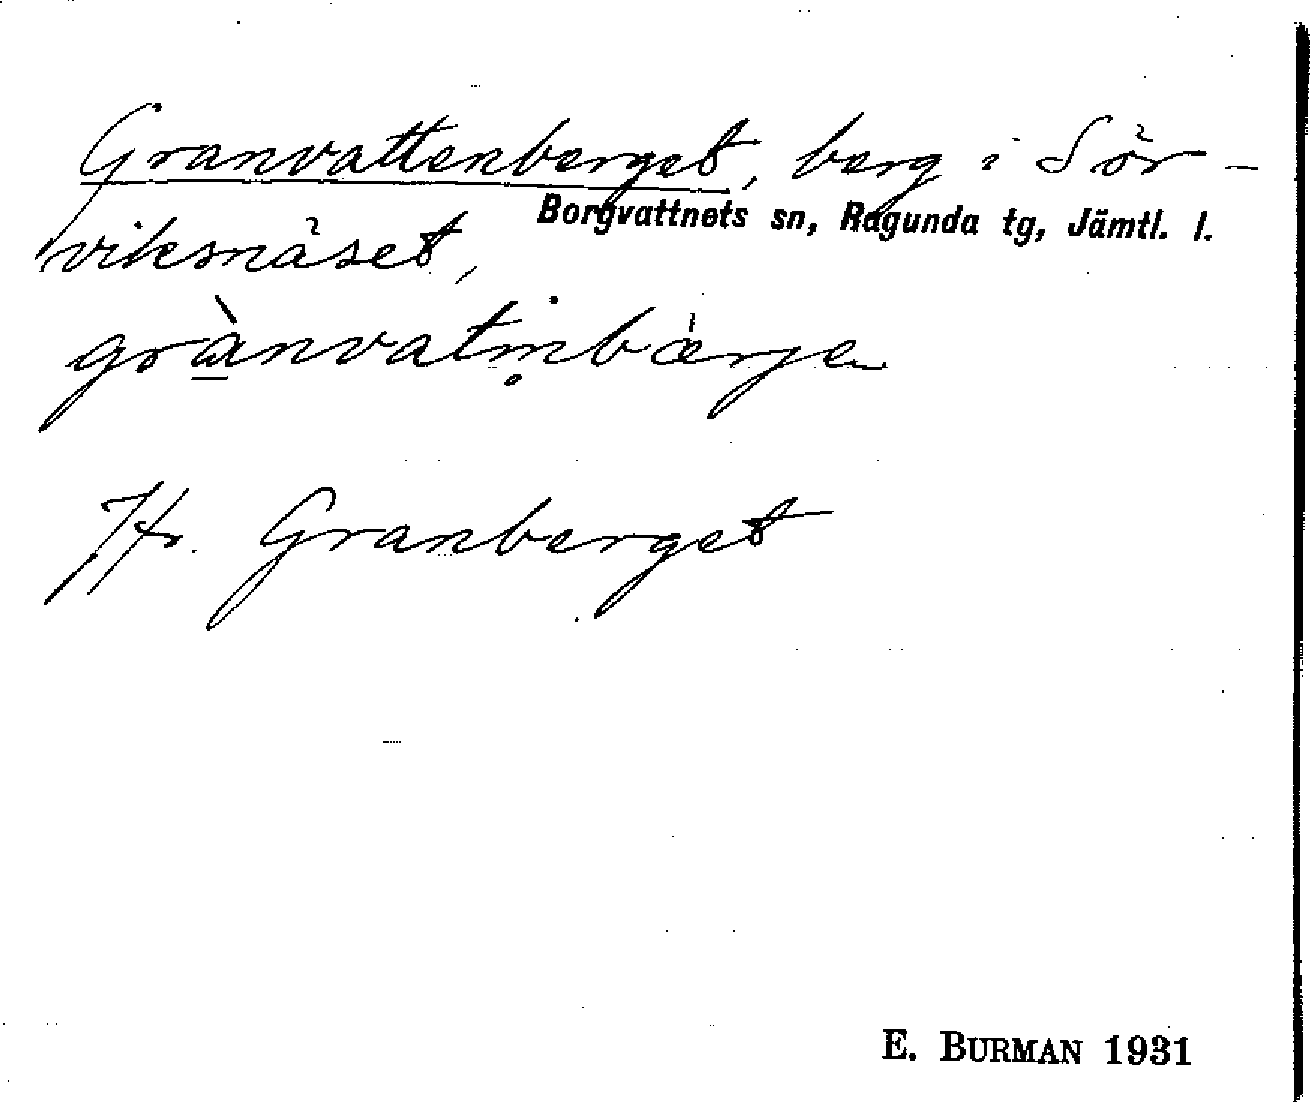 Granvattenberget, berg i Sör-
Borgvattnets sn, Ragunda tg, Jämtl. l.
viksnäset,
grànvatṇbærje
Jfr. Granberget
E. BURMAN 1931